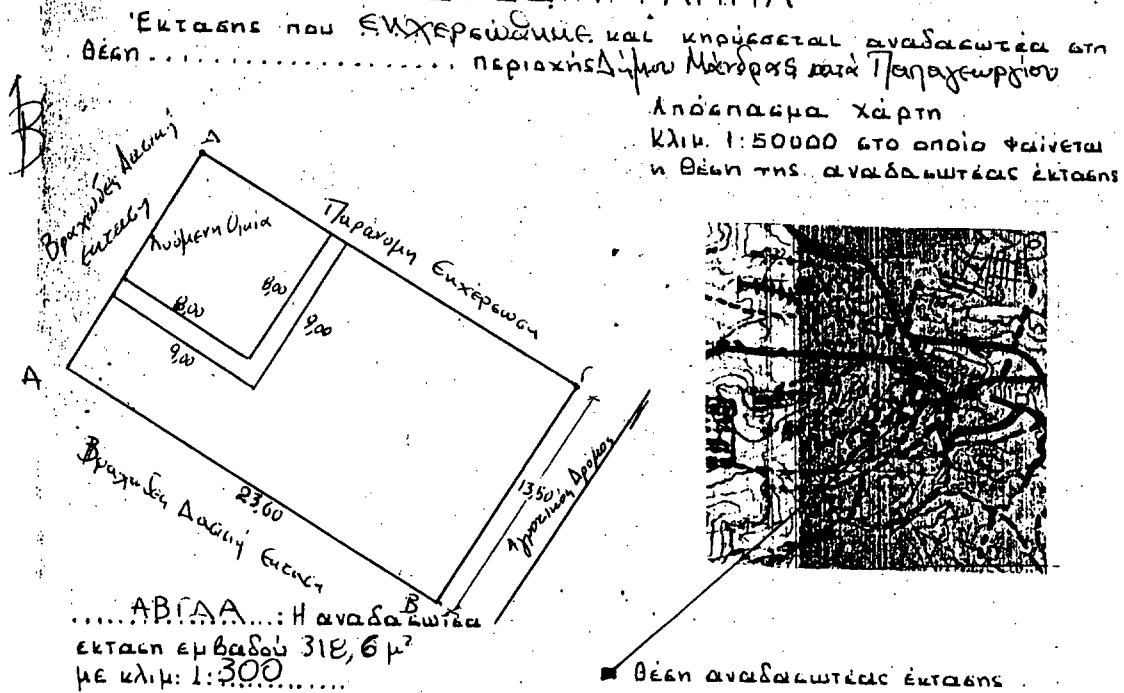 Έκτασης που εκχερσώθηκε και κηρύσσεται αναδασωτέα στη
θέση .................... περιοχής Δήμου Μάνδρας κατά Παπαγεωργίου
Απόσπασμα χάρτη
Κλιμ. 1:50000 στο οποίο φαίνεται
η θέση της αναδασωτέας έκτασης
Β
Δ
Βραχώδες Δασική
έκταση
Λυόμενη Οικία
Παράνομη Εκχέρσωση
8,00
8,00
9,00
9,00
Α
Γ
13,50
Αγροτικός Δρόμος
23,60
Βραχώδη Δασική Έκταση
Β
......ΑΒΓΔΑ......: Η αναδασωτέα
έκταση εμβαδού 318,6 μ²
με κλιμ: 1:300............
θέση αναδασωτέας έκτασης